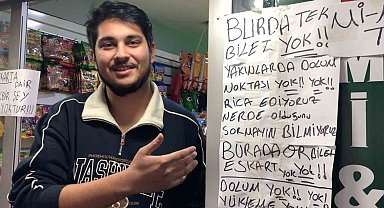 BURDA TEK
BİLET YOK!!
YAKINLARDA DOLUM
NOKTASI YOK!! YOK!!
RİCA EDİYORUZ
NERDE OLDUĞUNU
SORMAYIN BİLMİYORUZ
BURADA
ESKART YOK YOK!!
DOLUM YOK!! YOK!!
YÜKLEME
Mİ-
M
İ
&